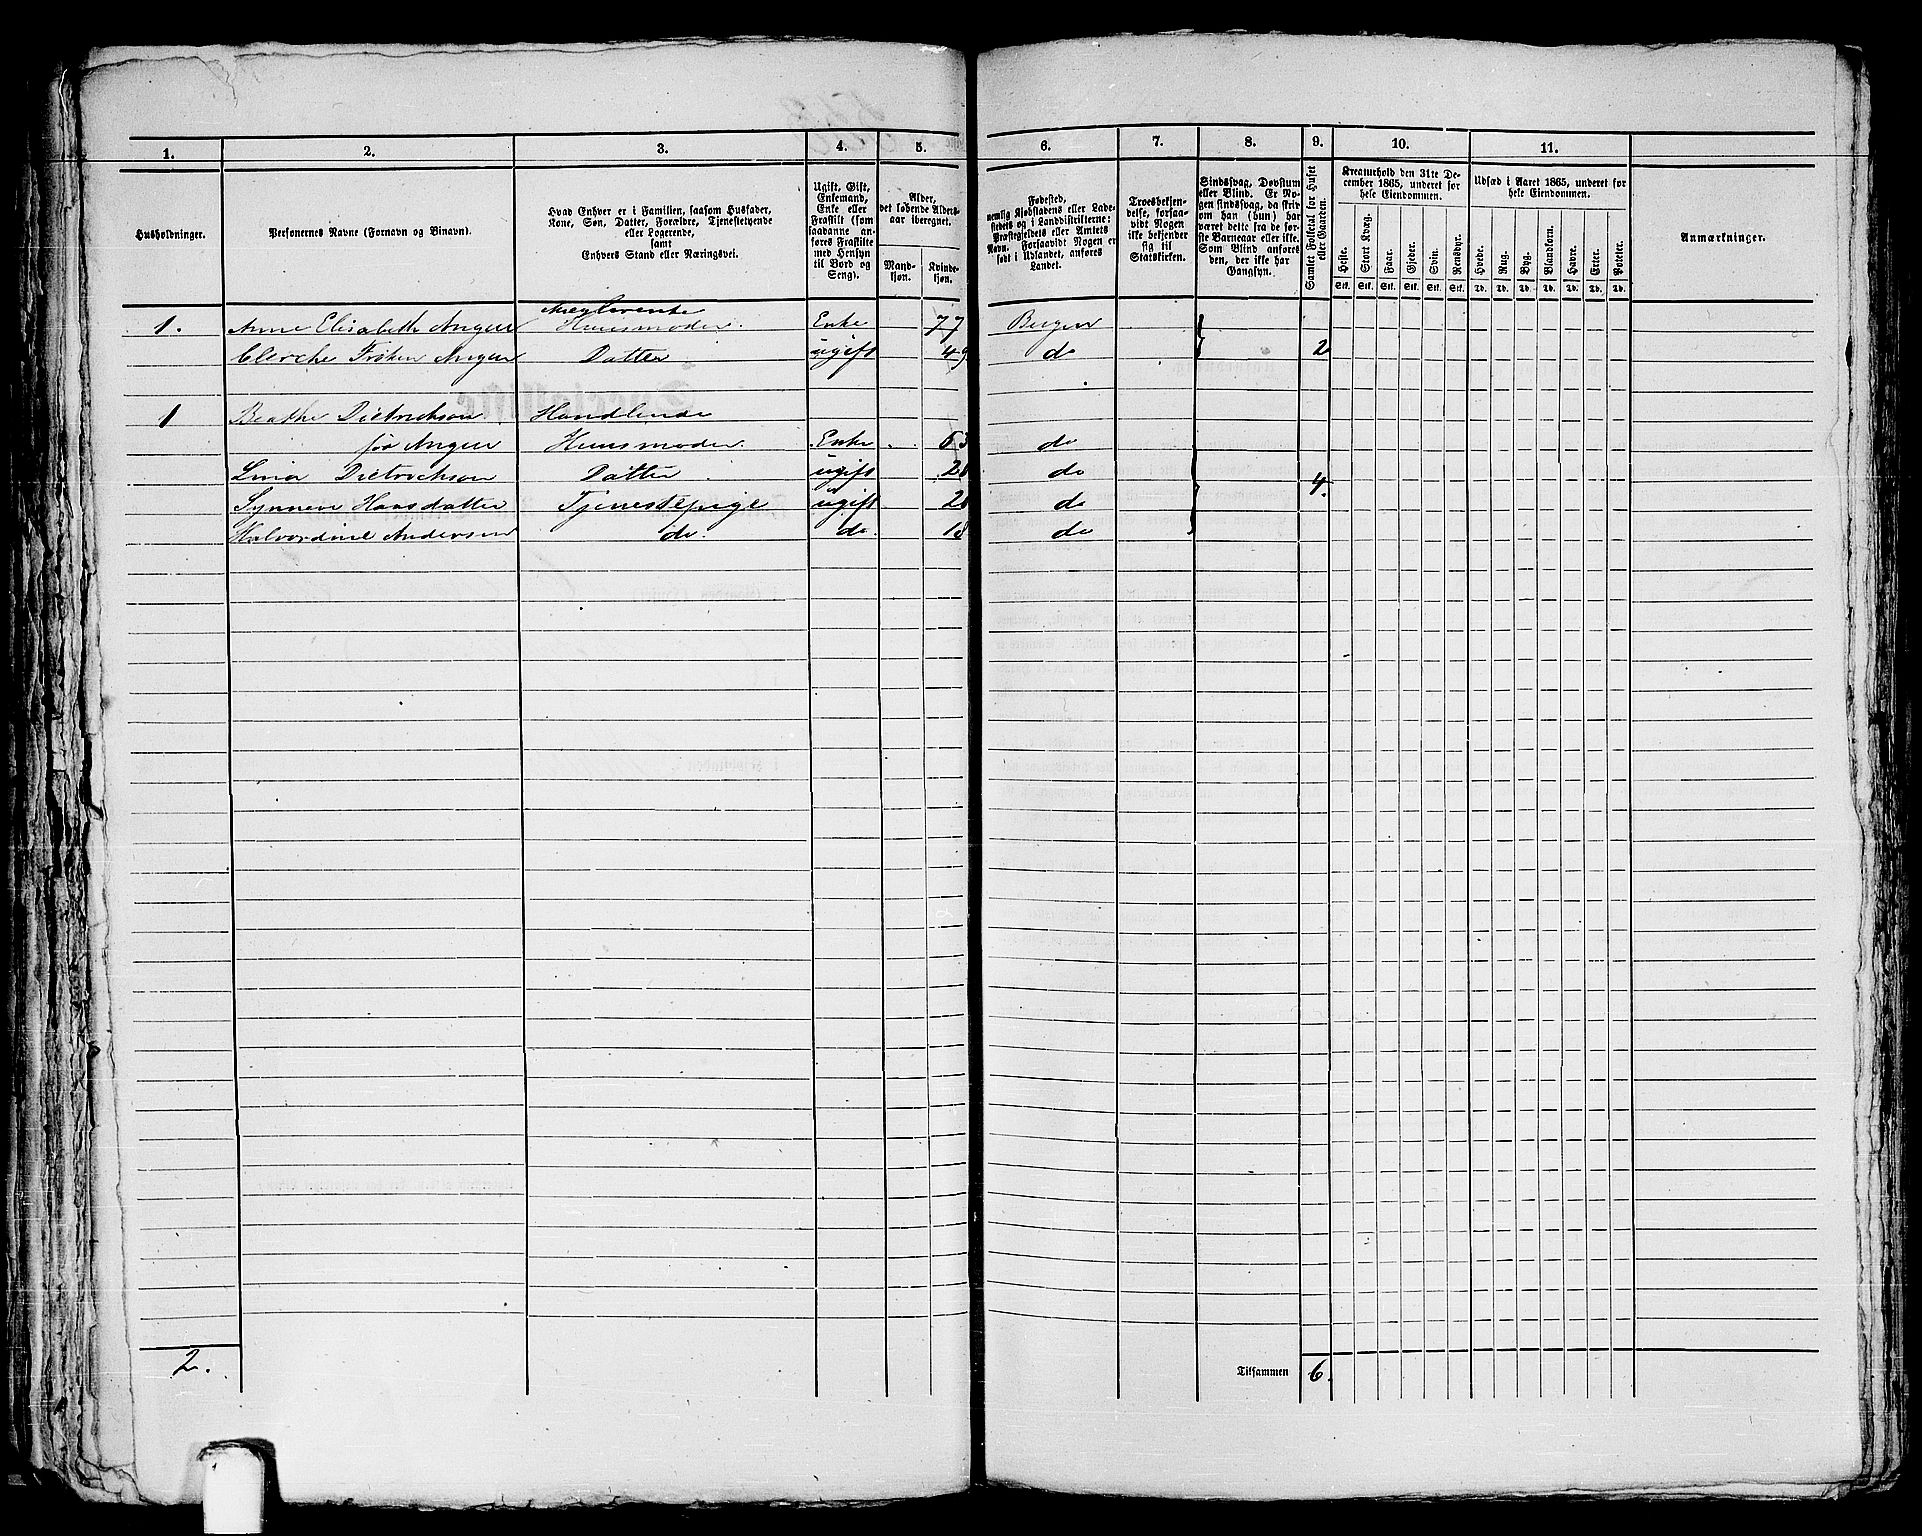 1. 2. 3. 4. 5. 6. 7. 8. 9. 10. 11.
Husholdninger.
Personernes Navne (Fornavn og Binavn).
Hvad Enhver er i Familien, saasom Husfader,
Kone, Søn, Datter, Forældre, Tjenestetyende
eller Logerende,
samt
Enhvers Stand eller Næringsvei.
Ugift, Gift,
Enkemand,
Enke eller
Fraskilt (som
saadanne an-
føres Fraskilte
med Hensyn
til Bord og
Seng).
Alder,
det løbende Alders-
aar iberegnet.
Mand-
kjøn.
Kvinde-
kjøn.
Fødested,
nemlig Kjøbstadens eller Lade-
stedets og i Landdistrikterne:
Præstegjeldets eller Amtets
Navn. Forsaavidt Nogen er
født i Udlandet, anføres
Landet.
Troesbekjen-
delse, forsaa-
vidt Nogen
ikke bekjender
sig til
Statskirken.
Sindssvag, Døvstum
eller Blind. Er No-
gen sindssvag, da skriv
om han (hun) har
været dette fra de før-
ste Barneaar eller ikke.
Som Blind anføres
den, der ikke har
Gangsyn.
Samlet Folketal for Huset
eller Gaarden.
Kreaturhold den 31te De-
cember 1865, underet for
hele Eiendommen.
Heste. Stort Kvæg. Faar. Gjeder. Svin. Rensdyr.
Stk. Stk. Stk. Stk. Stk. Stk.
Udsæd i Aaret 1865, underet for
hele Eiendommen.
Hvede. Rug. Byg. Blandkorn. Havre. Erter. Poteter.
Td. Td. Td. Td. Td. Td. Td.
Anmærkninger.
Mæglerenke
1. Anne Elisabeth Angell Huusmoder. Enke 77 Bergen
Frøken Angell Datter ugift 49 do 2
1 Beathe Dietrichson Handlende
fød Angell Huusmoder. Enke 63 do
Lina Dietrichson Datter ugift do
Synneve Hansdatter Tjenestepige ugift do 4.
Halvordine Andersen do. do. 18 do
2. Tilsammen 6.